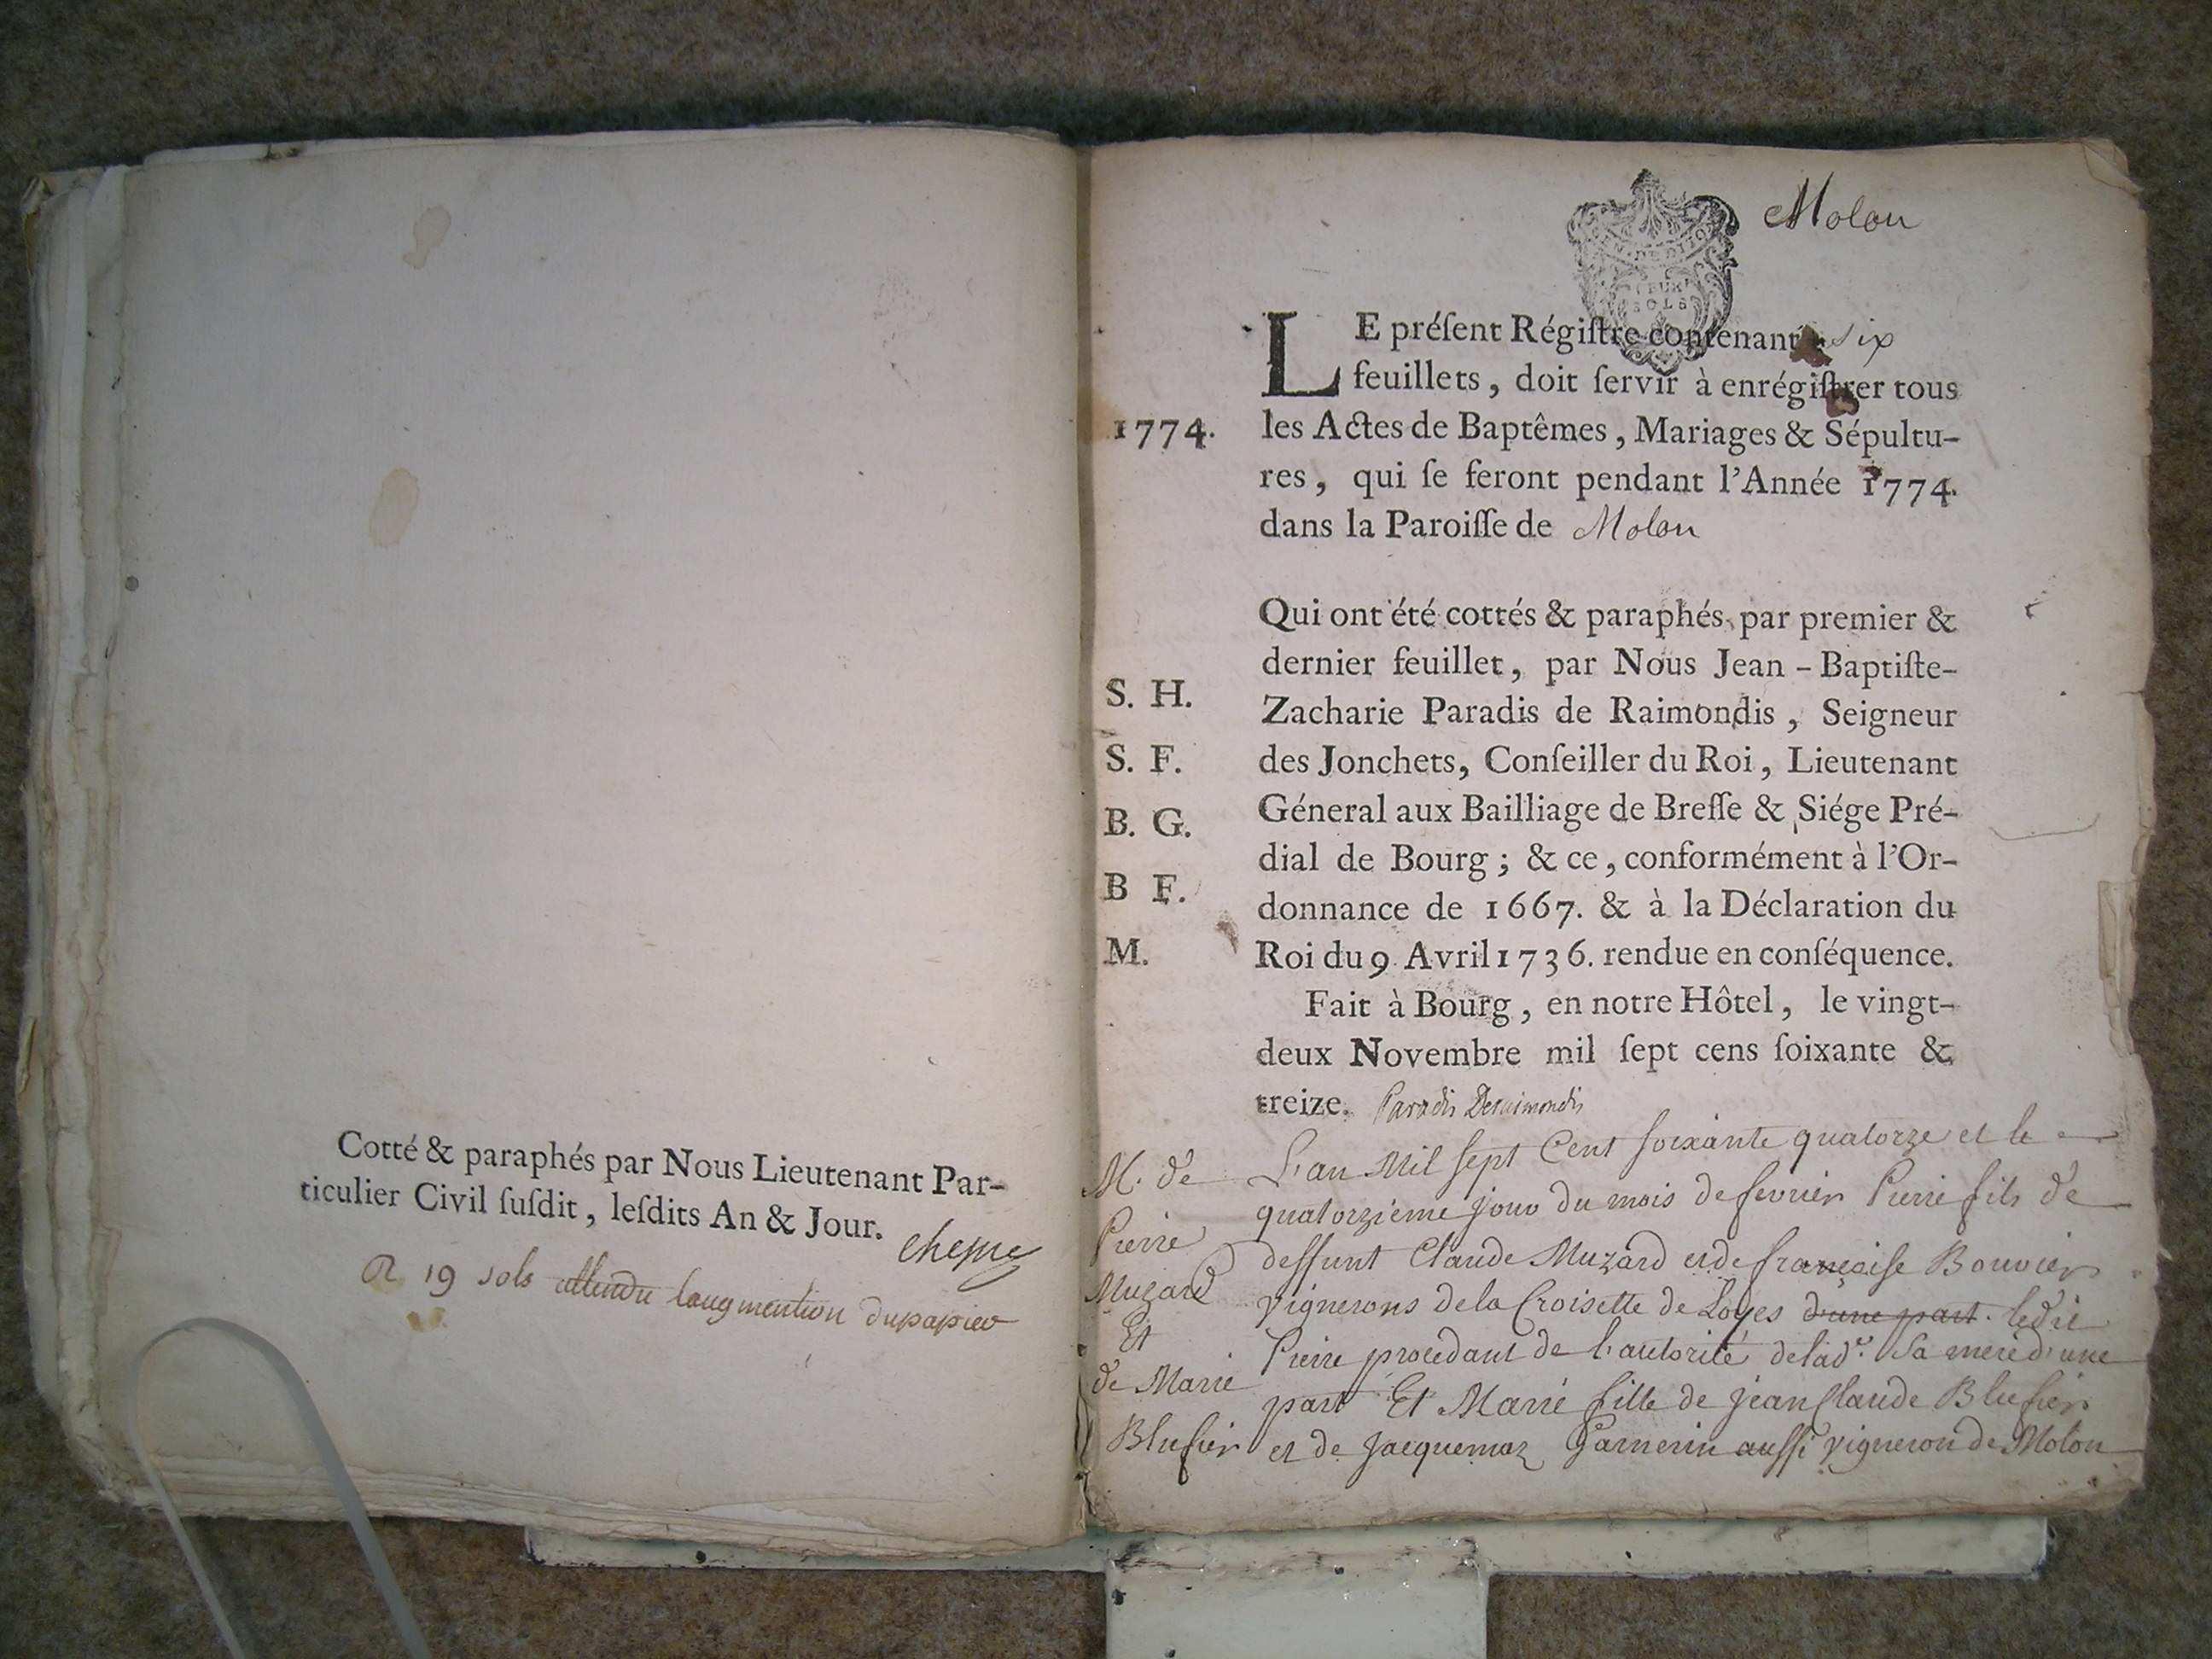 Cotté & paraphés par Nous Lieutenant Par-
ticulier Civil ſuſdit, leſdits An & Jour.
R 19 sols attendu laugmention du papier
Molon
LE préſent Régiſtre contenant six
feuillets, doit ſervir à enrégiſtrer tous
1774. les Actes de Baptêmes, Mariages & Sépultu-
res, qui ſe feront pendant l'Année 1774.
dans la Paroiſſe de Molon
Qui ont été cottés & paraphés, par premier &
dernier feuillet, par Nous Jean-Baptiſte-
S. H.
Zacharie Paradis de Raimondis, Seigneur
S. F.
des Jonchets, Conſeiller du Roi, Lieutenant
B. G.
Géneral aux Bailliage de Breſſe & Siége Pré-
dial de Bourg; & ce, conformément à l'Or-
B F.
donnance de 1667. & à la Déclaration du
M.
Roi du 9 Avril 1736. rendue en conſéquence.
Fait à Bourg, en notre Hôtel, le vingt-
deux Novembre mil ſept cens ſoixante &
treize. Paradis Deraimondis
M. de
Pierre
Muzard
Et
de Marie
Blufier
L'an Mil sept Cent soixante quatorze et le
quatorzieme jour du mois de fevrier Pierre fils de
deffunt Claude Muzard et de francoise Bouvier
vignerons de la Croisette de Loyes d'une part. ledit
Pierre procedant de l'autorité de lad.e sa mere d'une
part Et Marie fille de jean Claude Blufier
et de Jacquemaz Garnerin aussi vigneron de Molon